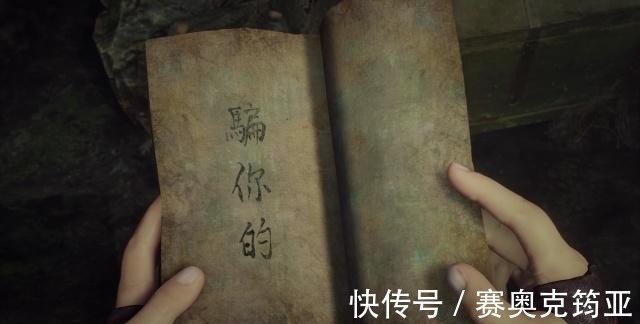 騙你的
快传号 / 赛奥克筠亚